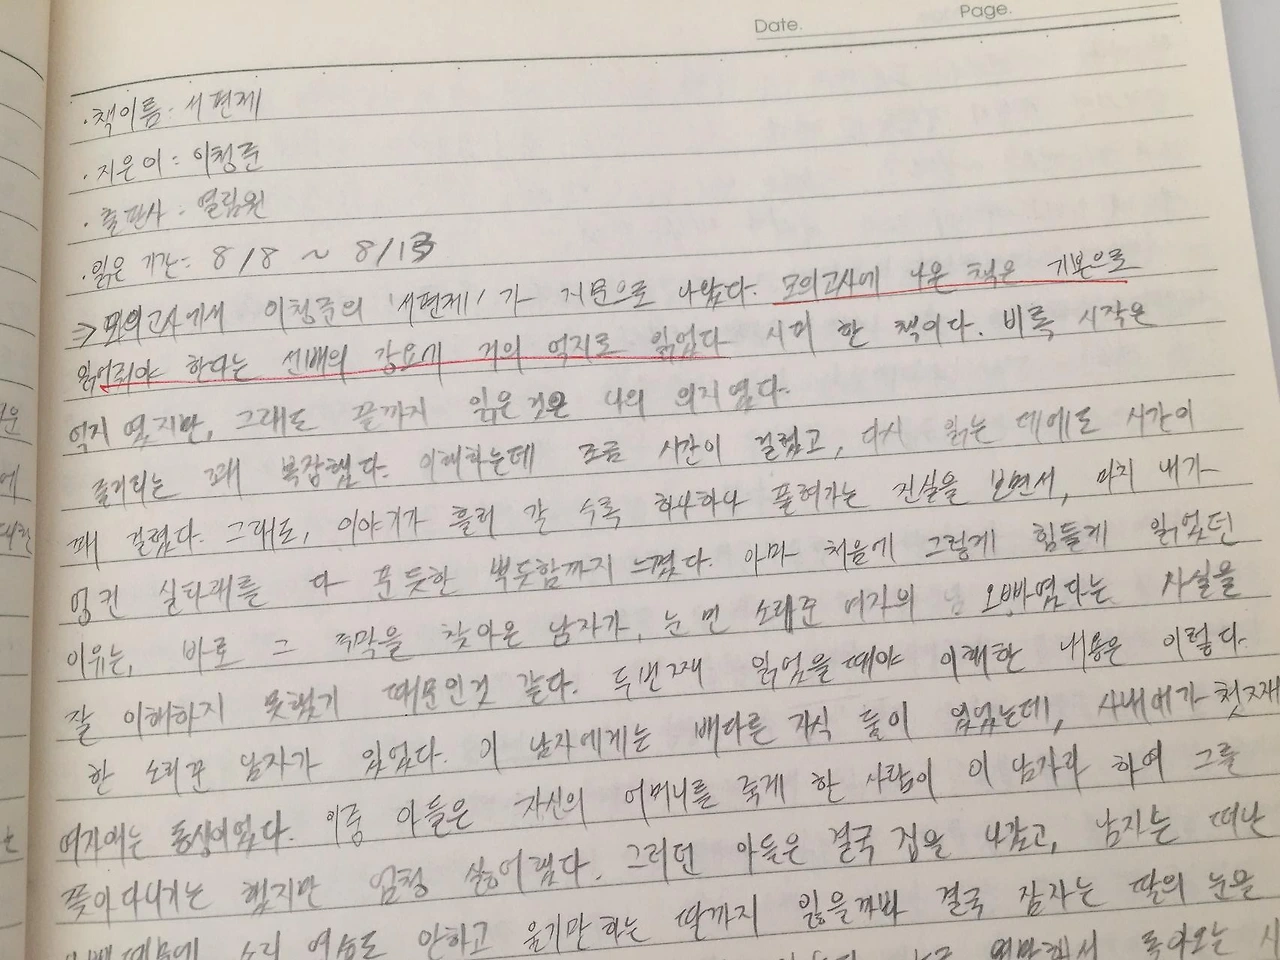 Date.
Page.
· 책이름 : 서편제
· 지은이 : 이청준
· 출판사 : 열림원
· 읽은 기간 : 8/8 ~ 8/13
⇒ 모의고사에서 이청준의 '서편제'가 지문으로 나왔다. 모의고사에 나온 책은 기본으로
읽어줘야 한다는 선배의 강요에 거의 억지로 읽었다 시피 한 책이다. 비록 시작은
억지 였지만, 그래도 끝까지 읽은것은 나의 의지였다.
줄거리는 꽤 복잡했다. 이해하는데 조금 시간이 걸렸고, 다시 읽는 데에도 시간이
꽤 걸렸다. 그래도, 이야기가 흘러 갈 수록 하나하나 풀려가는 진실을 보면서, 마치 내가
엉킨 실타래를 다 푼듯한 뿌듯함까지 느꼈다. 아마 처음에 그렇게 힘들게 읽었던
이유는, 바로 그 주막을 찾아온 남자가, 눈 먼 소리꾼 여자의 오빠였다는 사실을
잘 이해하지 못했기 때문인것 같다. 두번째 읽었을때야 이해한 내용은 이렇다.
한 소리꾼 남자가 있었다. 이 남자에게는 배다른 자식 둘이 있었는데, 사내애가 첫째
여자애는 동생이었다. 이중 아들은 자신의 어머니를 죽게 한 사람이 이 남자라 하여 그를
쫓아다니기는 했지만 엄청 싫어했다. 그러던 아들은 결국 집을 나갔고, 남자는 떠난
오빠때문에 소리 연습도 안하고 울기만하는 딸까지 잃을까봐 결국 잠자는 딸의 눈을